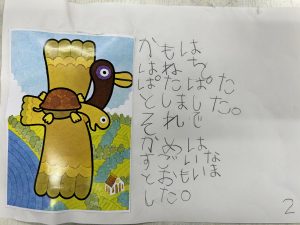 かもは
はねち
ぱたぱた
としました。
それで
かめは
すごいな
とおもいま
した。
2